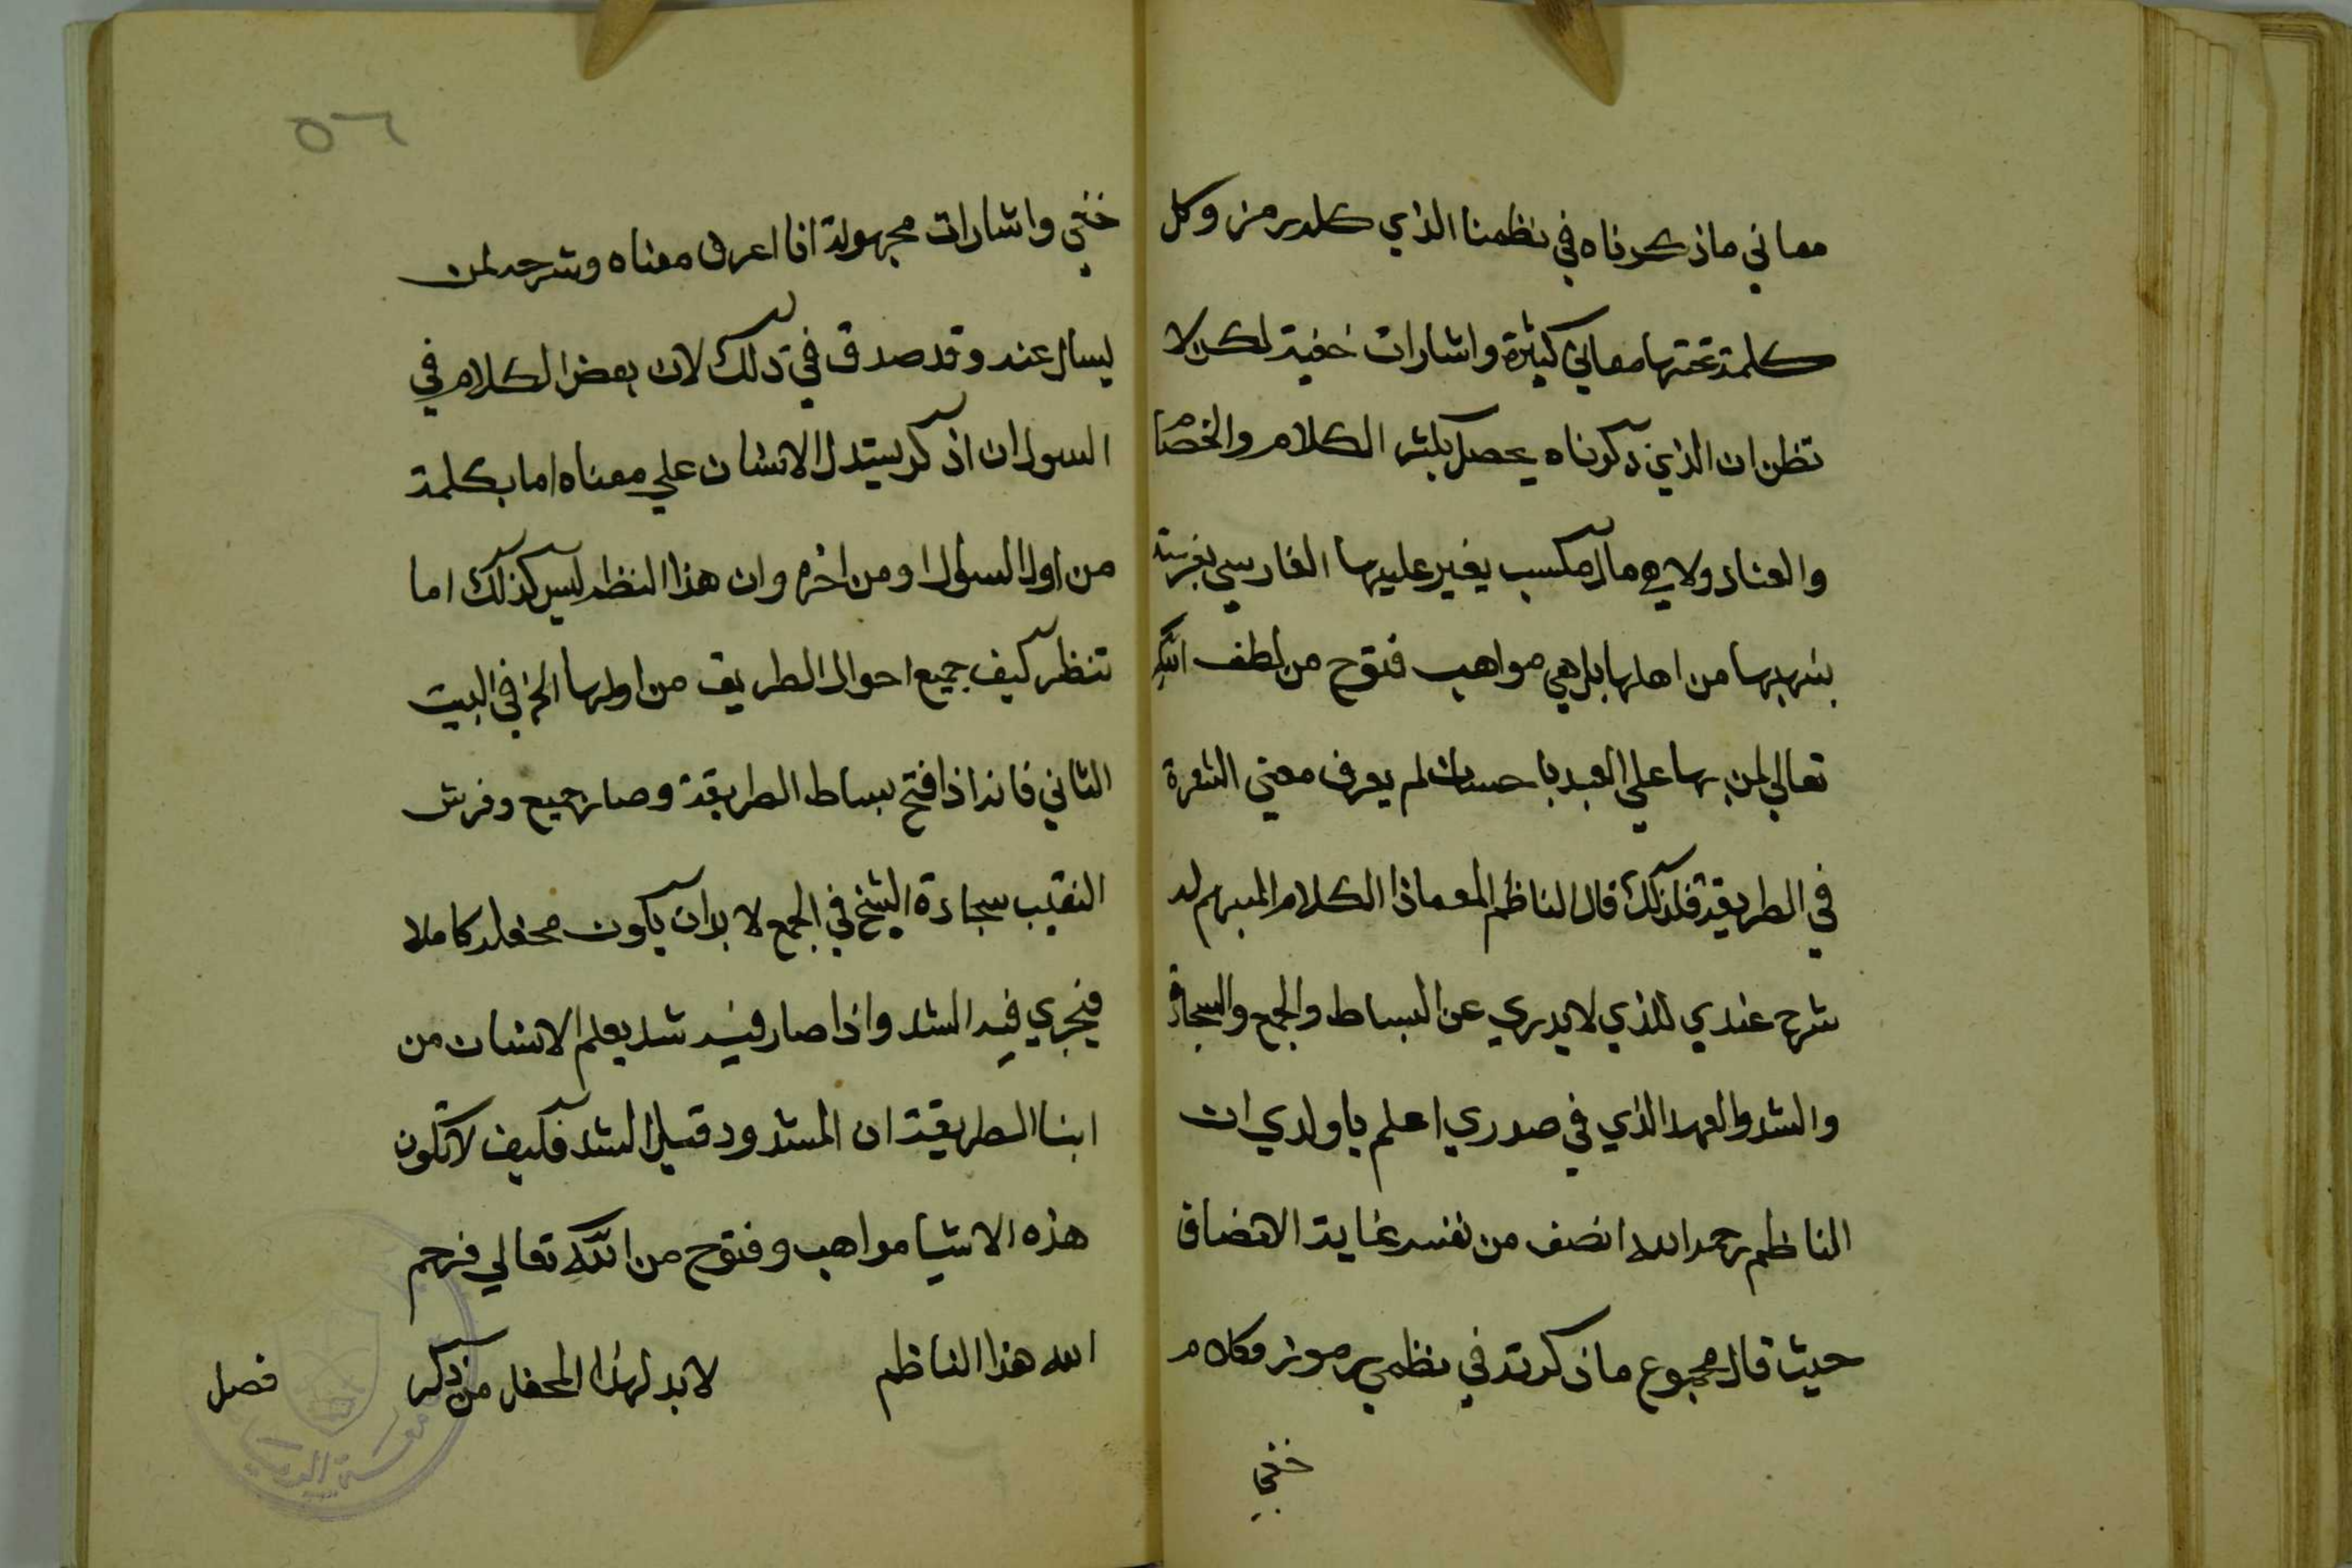 معاني ماذكرناه في نظمنا الذي كله رمز وكل
كلمة تحتها معاني كثيرة واشارات خفية لكن لا
تظن ان الذي ذكرناه يحصل بكثر الكلام والخصا
والعناد ولا هي مال مكسب يغير عليها الفارسي بفرسته
ينهبها من اهلها بل هي مواهب فتوح من لطف الله
تعالي لمن بها علي العبد باحسان لم يعرف معني الثغرة
في الطريقة فلذلك قال الناظم المعماذا الكلام المبهم له
شرح عندي للذي لا يدري عن البساط والجمع والسجادة
والشد والعهد الذي في صدري اعلم يا ولدي ان
الناظم رحمه الله انصف من نفسه غاية الانصاف
حيث قال مجموع ما ذكرته في نظمي برموز وكلام
خفي
٥٦
خفي واشارات مجهولة انا اعرف معناه وشرحه لمن
يسال عنه وقد صدق في ذلك لان بعض الكلام في
السوال ان اذكر يستدل الانسان علي معناه اما بكلمة
من اول السوال او من اخره وان هذا النظم ليس كذلك اما
تنظر كيف جميع احوال الطريق من اولها الخ في البيت
الثاني فانه اذا فتح بساط الطريقة وصار جميع وفرش
النقيب سجادة الشيخ في الجمع لا بد ان يكون محفله كاملا
فيجري فيه الشد واذا صار فيه شد يعلم الانسان من
ابنا الطريقة ان المشدود قبل الشد فكيف لا تكون
هذه الاشيا مواهب وفتوح من الله تعالي فرحم
الله هذا الناظم لا بد لهذا المحفل من ذكر
فصل